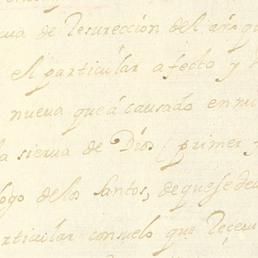 de Resurección del año q
el particular afecto y
nueva que á causado en mi
la sierva de Dios (primer
logo de los Santos, de que se de
articular consuelo que Reçeui